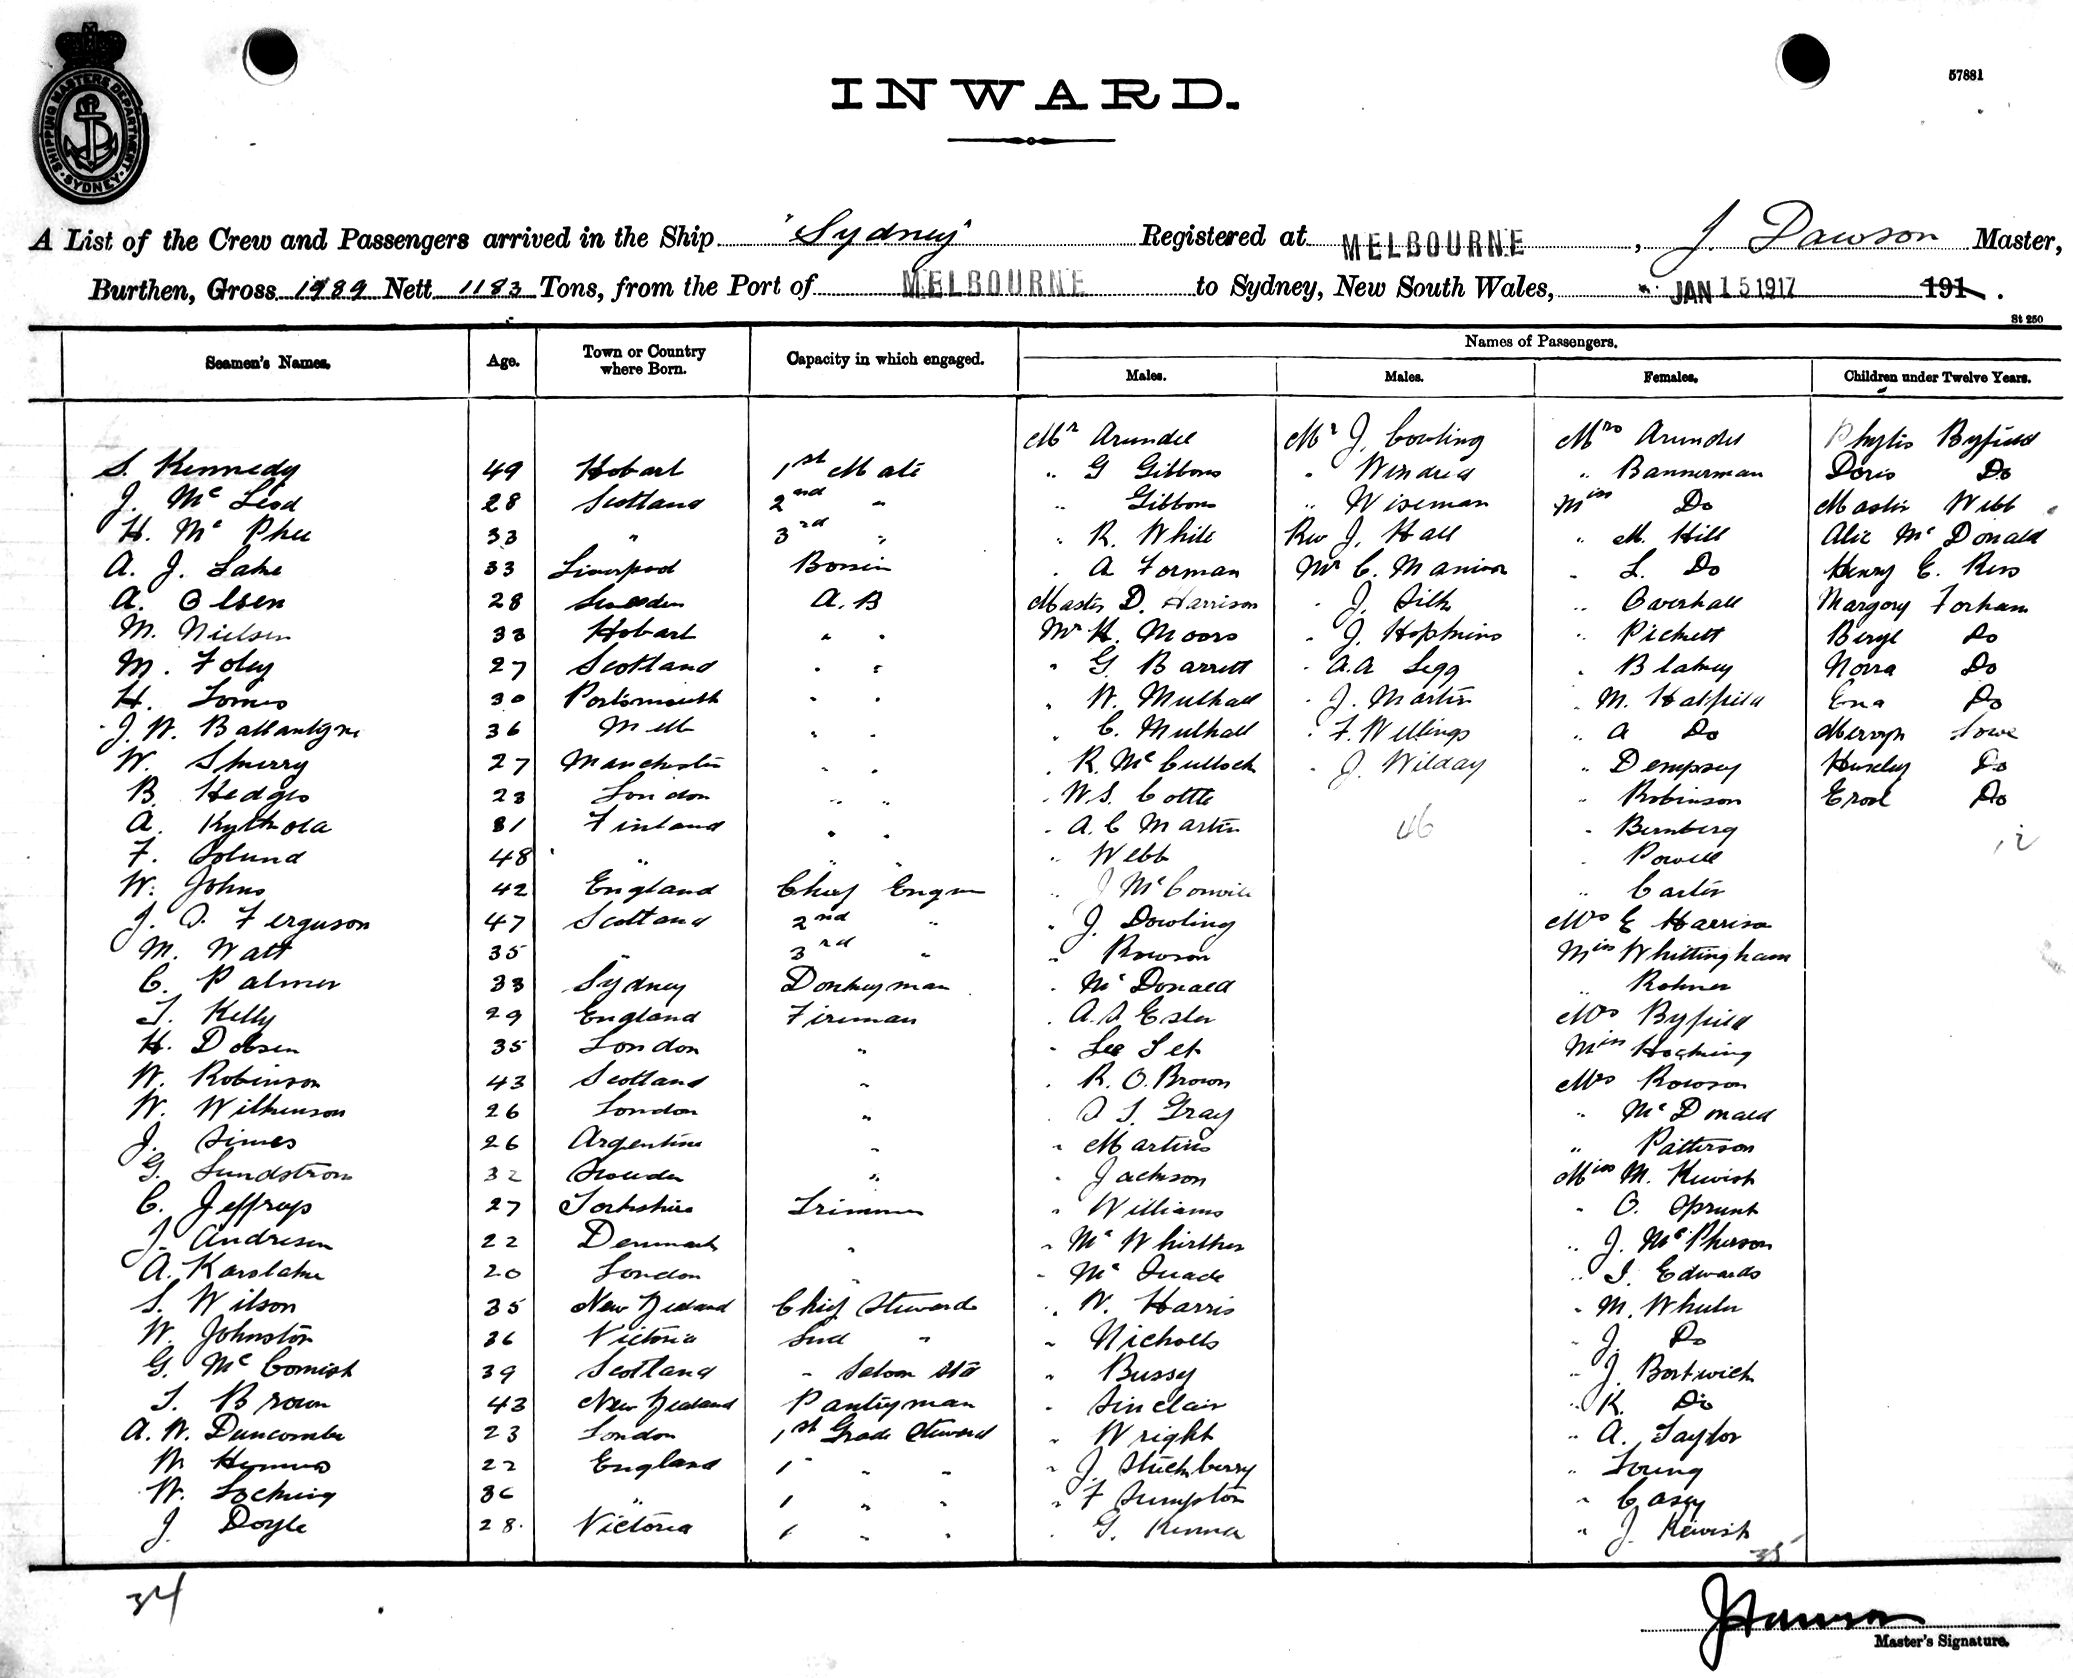 SHIPPING MASTERS DEPARTMENT · SYDNEY ·
57881
INWARD.
A List of the Crew and Passengers arrived in the Ship "Sydney" Registered at MELBOURNE, J. Dawson Master,
Burthen, Gross 1989 Nett 1183 Tons, from the Port of MELBOURNE to Sydney, New South Wales, JAN 15 1917 191 .
St 250
Seamen's Names. Age. Town or Country where Born. Capacity in which engaged. Names of Passengers.
Males. Males. Females. Children under Twelve Years.
Mr Arundel Mr J. Cowling Mrs Arundel Phylis Byfield
S. Kennedy 49 Hobart 1st Mate " G Gibbons " " Bannerman Doris Do
J. Mc Leod 28 Scotland 2nd " " Gibbons " Wiseman Miss Do Master Webb
H. Mc Phee 33 " 3rd " " R. White Rev J. Hall " M. Hill Alic Mc Donald
A. J. Lake 33 Liverpool Bossin " A Forman Mr C. " L. Do Henry E. Ress
A. Olsen 28 Sweden A.B Master D. Harrison " J. Silk " Overhall Margory Forham
M. Nielsen 33 Hobart " " Mr H. Moors " J. Hopkins " Pickett Beryl Do
M. Foley 27 Scotland " " " G Barrett " A.A Legg " Blakey Norra Do
H. Lomes 30 Portsmouth " " " W. Mulhall " J. Martin " M. Hatfield Ena Do
J. W. Ballantyne 36 Melb " " " C. Mulhall " F. Wellings " A Do Mervyn Lowe
W. Sherry 27 Manchester " " " R. McCulloch " J. Wilday " Dempsey Do
B. Hedges 23 London " " " W. S. Cottle " Robinson Do
A. Kythola 31 Finland " " " A. C Martin 46 " Bernberg 12
F. Solund 48 " " " " Webb " Powell
W. Johns 42 England Chief Engnr " J McConvill " Carter
J. S. Ferguson 47 Scotland 2nd " " J. Dowling Mrs E Harrison
M. Watt 35 " 3rd " " Rowson Miss Whittingham
C. Palmer 33 Sydney Donkeyman " Mc Donald " Rohner
T. Kelly 29 England Fireman " A. S Esler Mrs Byfield
H. Dobsen 35 London " " Lee Set Miss Hocking
W. Robinson 43 Scotland " " R. O. Brown Mrs Rowson
W. Wilkenson 26 London " " S T. Gray " Mc Donald
J. Simes 26 Argentine " " Martins " Patterson
G. Lundstrom 32 Sweden " " Jackson Miss M. Kewish
C. Jeffreys 27 Yorkshire Trimmer " Williams " O. Sprunt
J. Andresen 22 Denmark " " Mc Whirther " J. McPherson
A. Karslake 20 London " " Mc Quade " I. Edwards
S. Wilson 35 New Zealand Chief Steward " W. Harris " M. Wheeler
W. Johnston 36 Victoria 2nd " " Nicholls " J. Do
G. Mc Cornish 39 Scotland " Saloon Std " Bussy " J. Bortwick
T. Brown 43 New Zealand Pantryman " Sinclair " K. Do
A. W. Duncombe 23 London 1st Grade Steward " Wright " A. Taylor
W Hymus 22 England 1 " " " J. Stuckberry " Young
W. Locking 36 " 1 " " " F Sumpton " Casey
J. Doyle 28. Victoria 1 " " " G. Kenna " J. Kewish
35
34
Master's Signature.